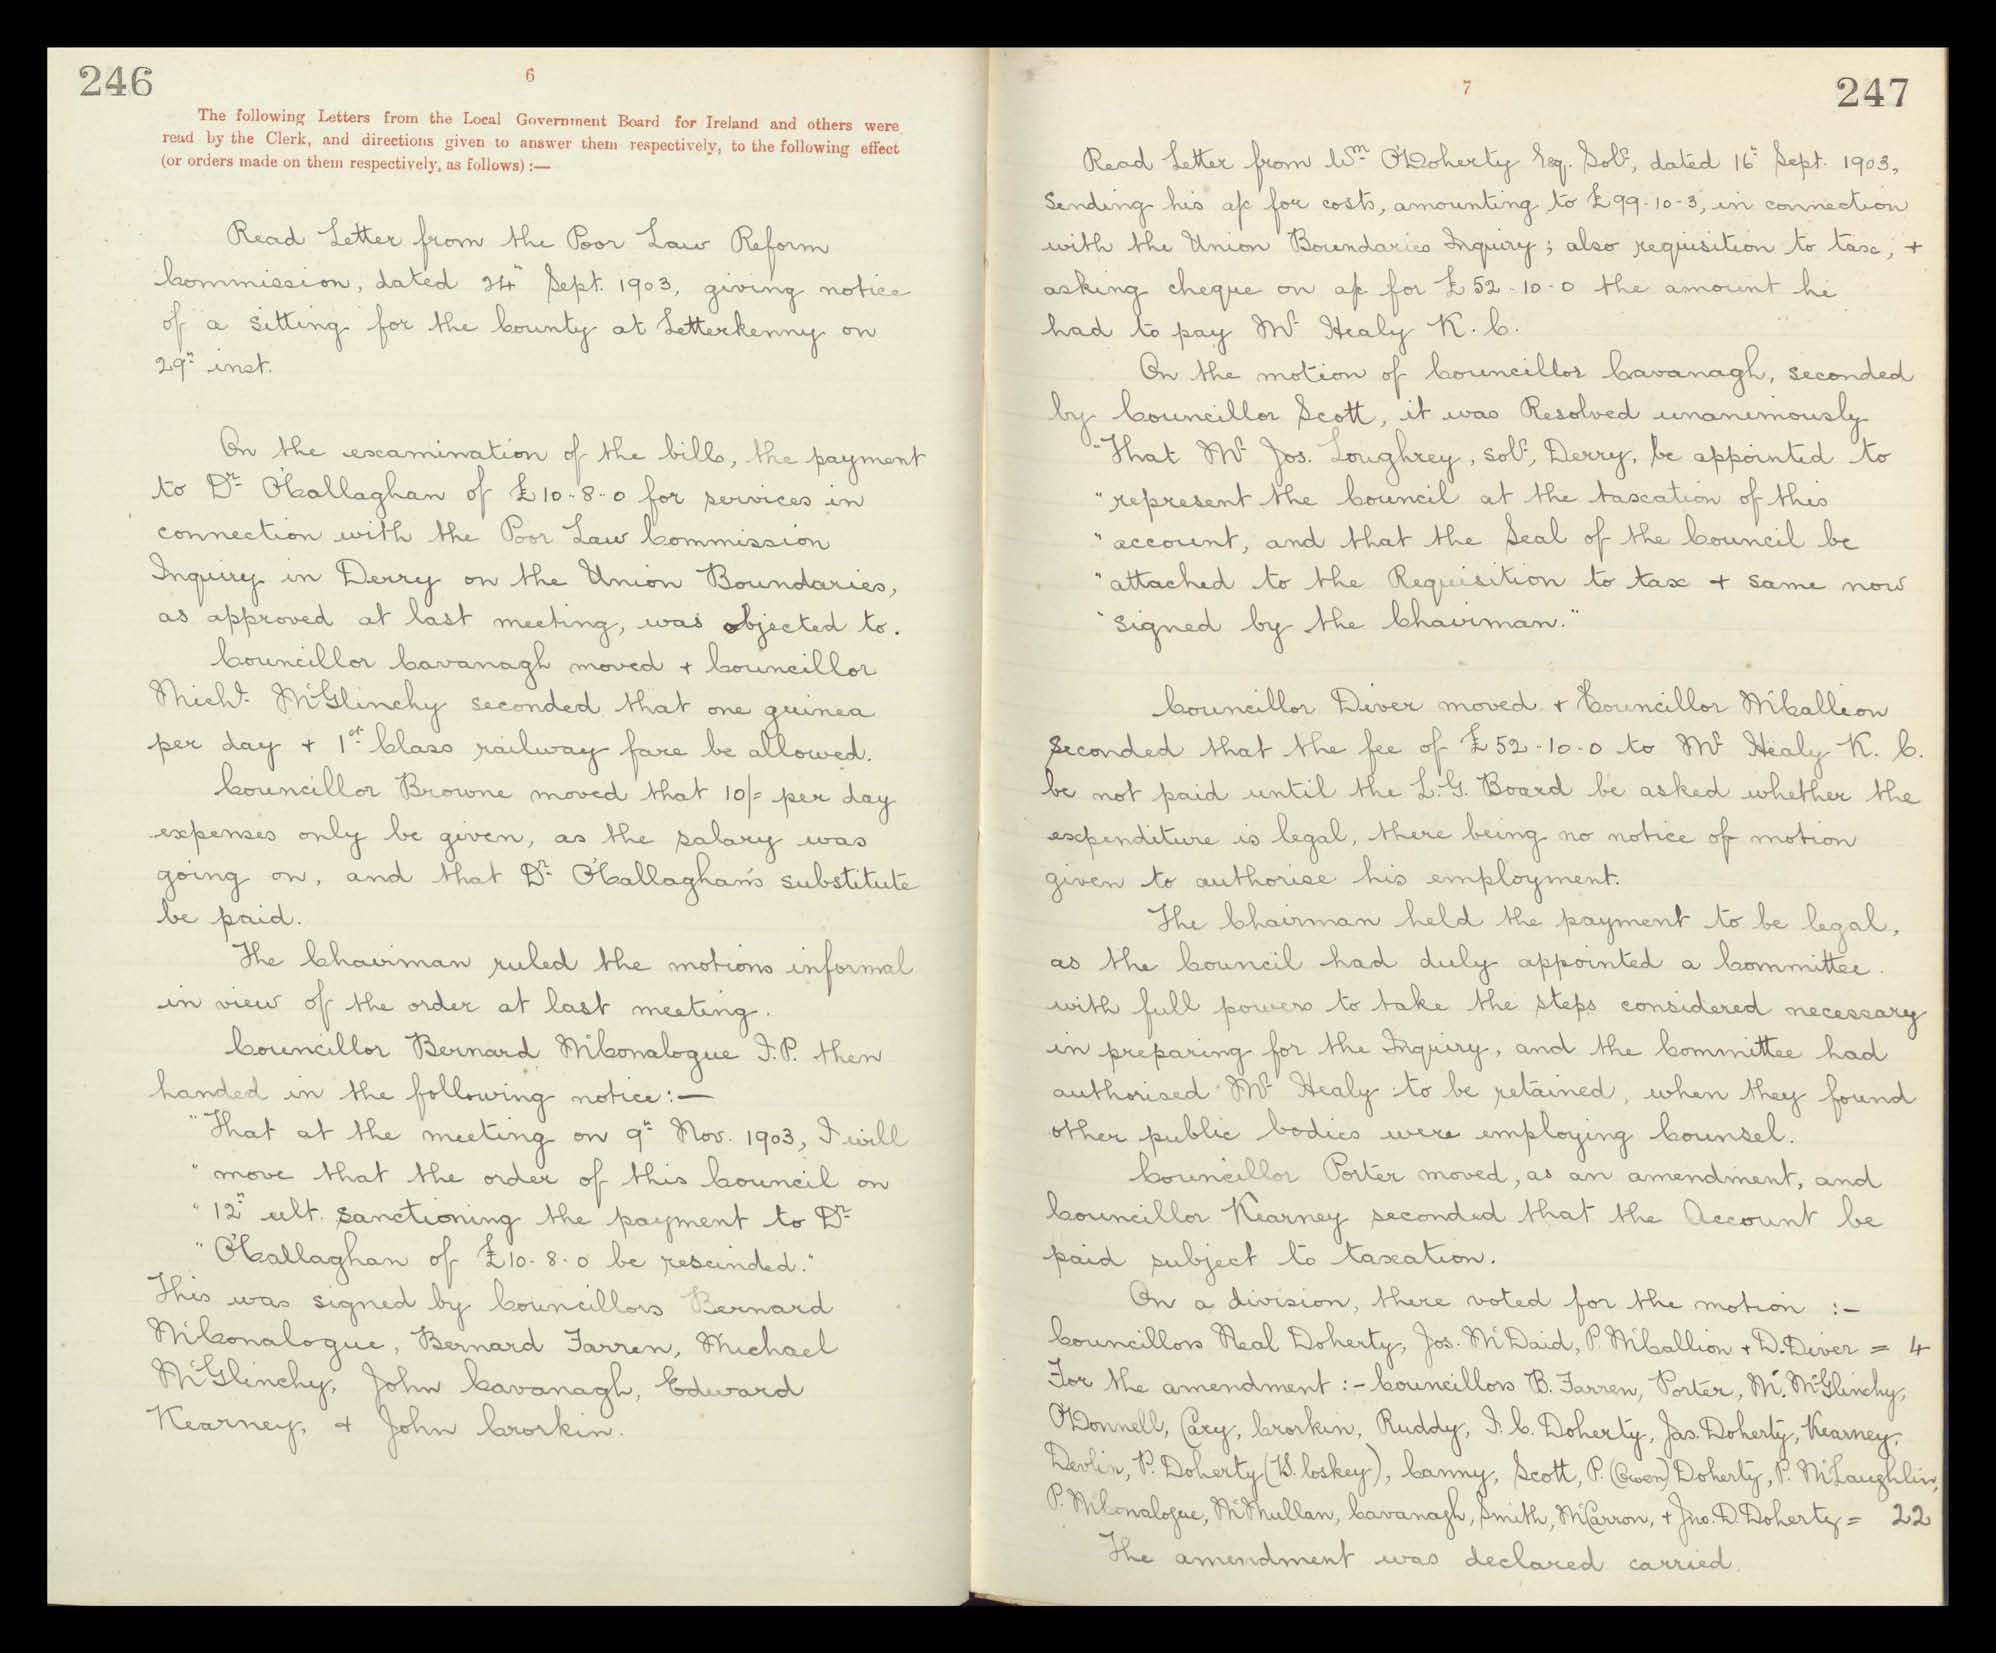 246
6
The following Letters from the Local Government Board for Ireland and others were
read by the Clerk, and directions given to answer them respectively, to the following effect
(or orders made on them respectively, as follows) :—
Read Letter from the Poor Law Reform
Commission, dated 24th Sept. 1903, giving notice
of a sitting for the County at Letterkenny on
29th inst.
On the examination of the bills, the payment
to Dr. O'Callaghan of £10-8-0 for services in
connection with the Poor Law Commission
Inquiry in Derry on the Union Boundaries,
as approved at last meeting, was objected to.
Councillor Cavanagh moved + Councillor
Michl. McGlinchy seconded that one guinea
per day + 1st Class railway fare be allowed.
Councillor Browne moved that 10/= per day
expenses only be given, as the salary was
going on, and that Dr. O'Callaghan's substitute
be paid.
The Chairman ruled the motions informal
in view of the order at last meeting.
Councillor Bernard McConalogue J.P. then
handed in the following notice :—
"That at the meeting on 9th Nov. 1903, I will
"move that the order of this Council on
"12th ult. sanctioning the payment to Dr.
"O'Callaghan of £10-8-0 be rescinded."
This was signed by Councillors Bernard
McConalogue, Bernard Farren, Michael
McGlinchy, John Cavanagh, Edward
Kearney, + John Crorkin.
7
247
Read Letter from Wm. O'Doherty Esq. Solr., dated 16th Sept. 1903,
sending his a/c for costs, amounting to £99-10-3, in connection
with the Union Boundaries Inquiry; also requisition to tax, +
asking cheque on a/c for £52-10-0 the amount he
had to pay Mr. Healy K.C.
On the motion of Councillor Cavanagh, seconded
by Councillor Scott, it was Resolved unanimously
"That Mr. Jos. Loughrey, solr., Derry, be appointed to
"represent the Council at the taxation of this
"account, and that the Seal of the Council be
"attached to the Requisition to tax + same now
"signed by the Chairman."
Councillor Diver moved + Councillor McCallion
seconded that the fee of £52-10-0 to Mr. Healy K.C.
be not paid until the L.G. Board be asked whether the
expenditure is legal, there being no notice of motion
given to authorise his employment.
The Chairman held the payment to be legal,
as the Council had duly appointed a Committee
with full powers to take the steps considered necessary
in preparing for the Inquiry, and the Committee had
authorised Mr. Healy to be retained, when they found
other public bodies were employing Counsel.
Councillor Porter moved, as an amendment, and
Councillor Kearney seconded that the Account be
paid subject to taxation.
On a division, there voted for the motion :-
Councillors Neal Doherty, Jos. McDaid, P. McCallion + D. Diver = 4
For the amendment :- Councillors B. Farren, Porter, M. McGlinchy,
O'Donnell, Cary, Crorkin, Ruddy, J.C. Doherty, Jas. Doherty, Kearney,
Devlin, P. Doherty (B. loskey), Canny, Scott, P. (Owen) Doherty, P. McLaughlin,
P. McConalogue, McMullan, Cavanagh, Smith, McCarron, + Jno. D. Doherty = 22
The amendment was declared carried.